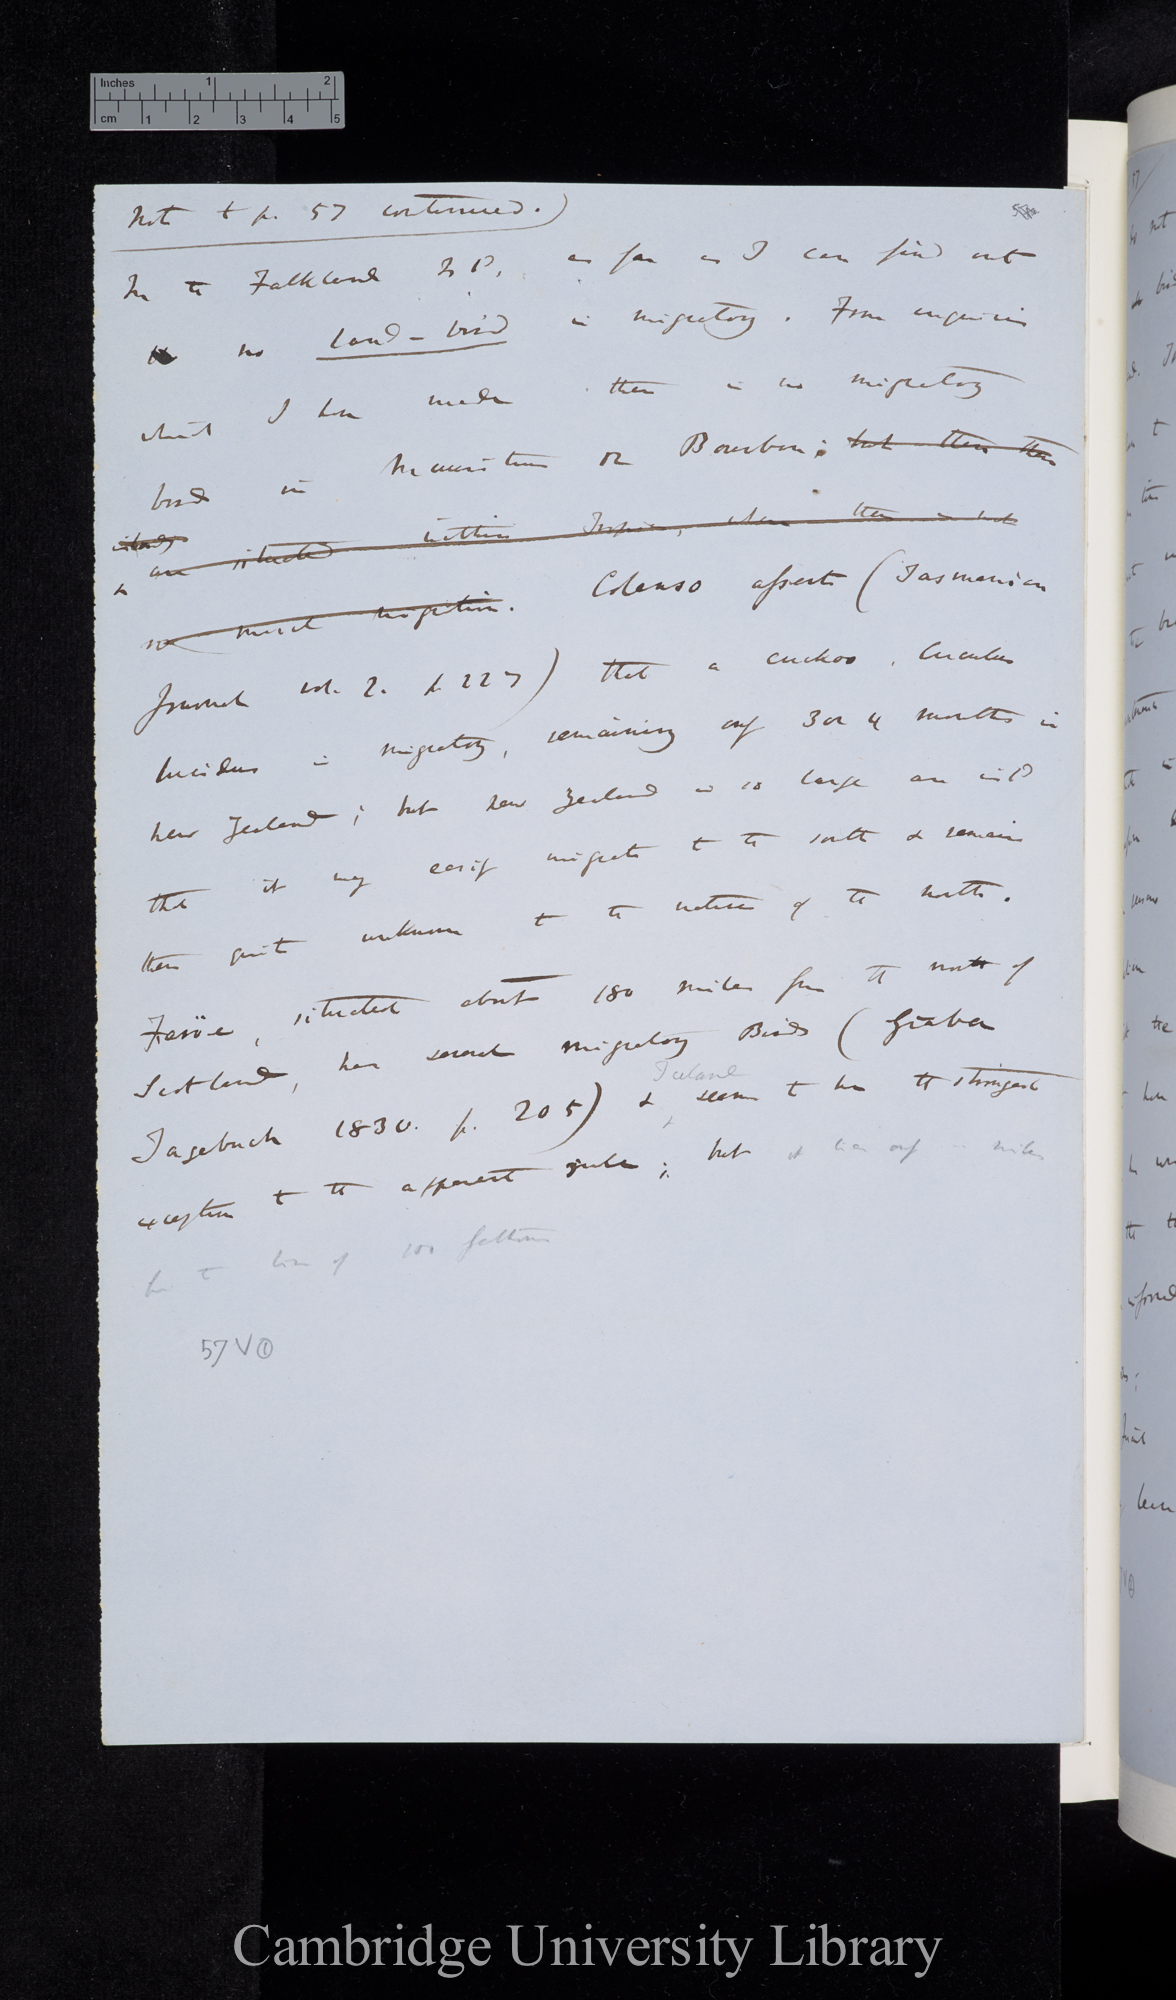 Inches 1 2
cm 1 2 3 4 5
Note to p. 57 continued.)
In the Falkland Isd, as far as I can find out
no land-bird is migratory. From enquiries
which I have made there is no migratory
bird in Mauritius or Bourbon; but these
islands
are situated within Tropics, where there is not
so much migration. Colenso asserts (Tasmanian
Journal vol. 2. p 227) that a cuckoo, Cuculus
lucidus is migratory, remaining only 3 or 4 months in
New Zealand; but New Zealand is so large an isld
that it may easily migrate to the south & remain
there quite unknown to the natives of the north.
Feröe, situated about 180 miles from the north of
Scotland, has several migratory Birds (Graba
Iceland
Tagebuch 1830. p. 205) & seems to be the strongest
exception to the apparent rule; but it lies only miles
from the line of 100 fathoms
57V①
Cambridge University Library